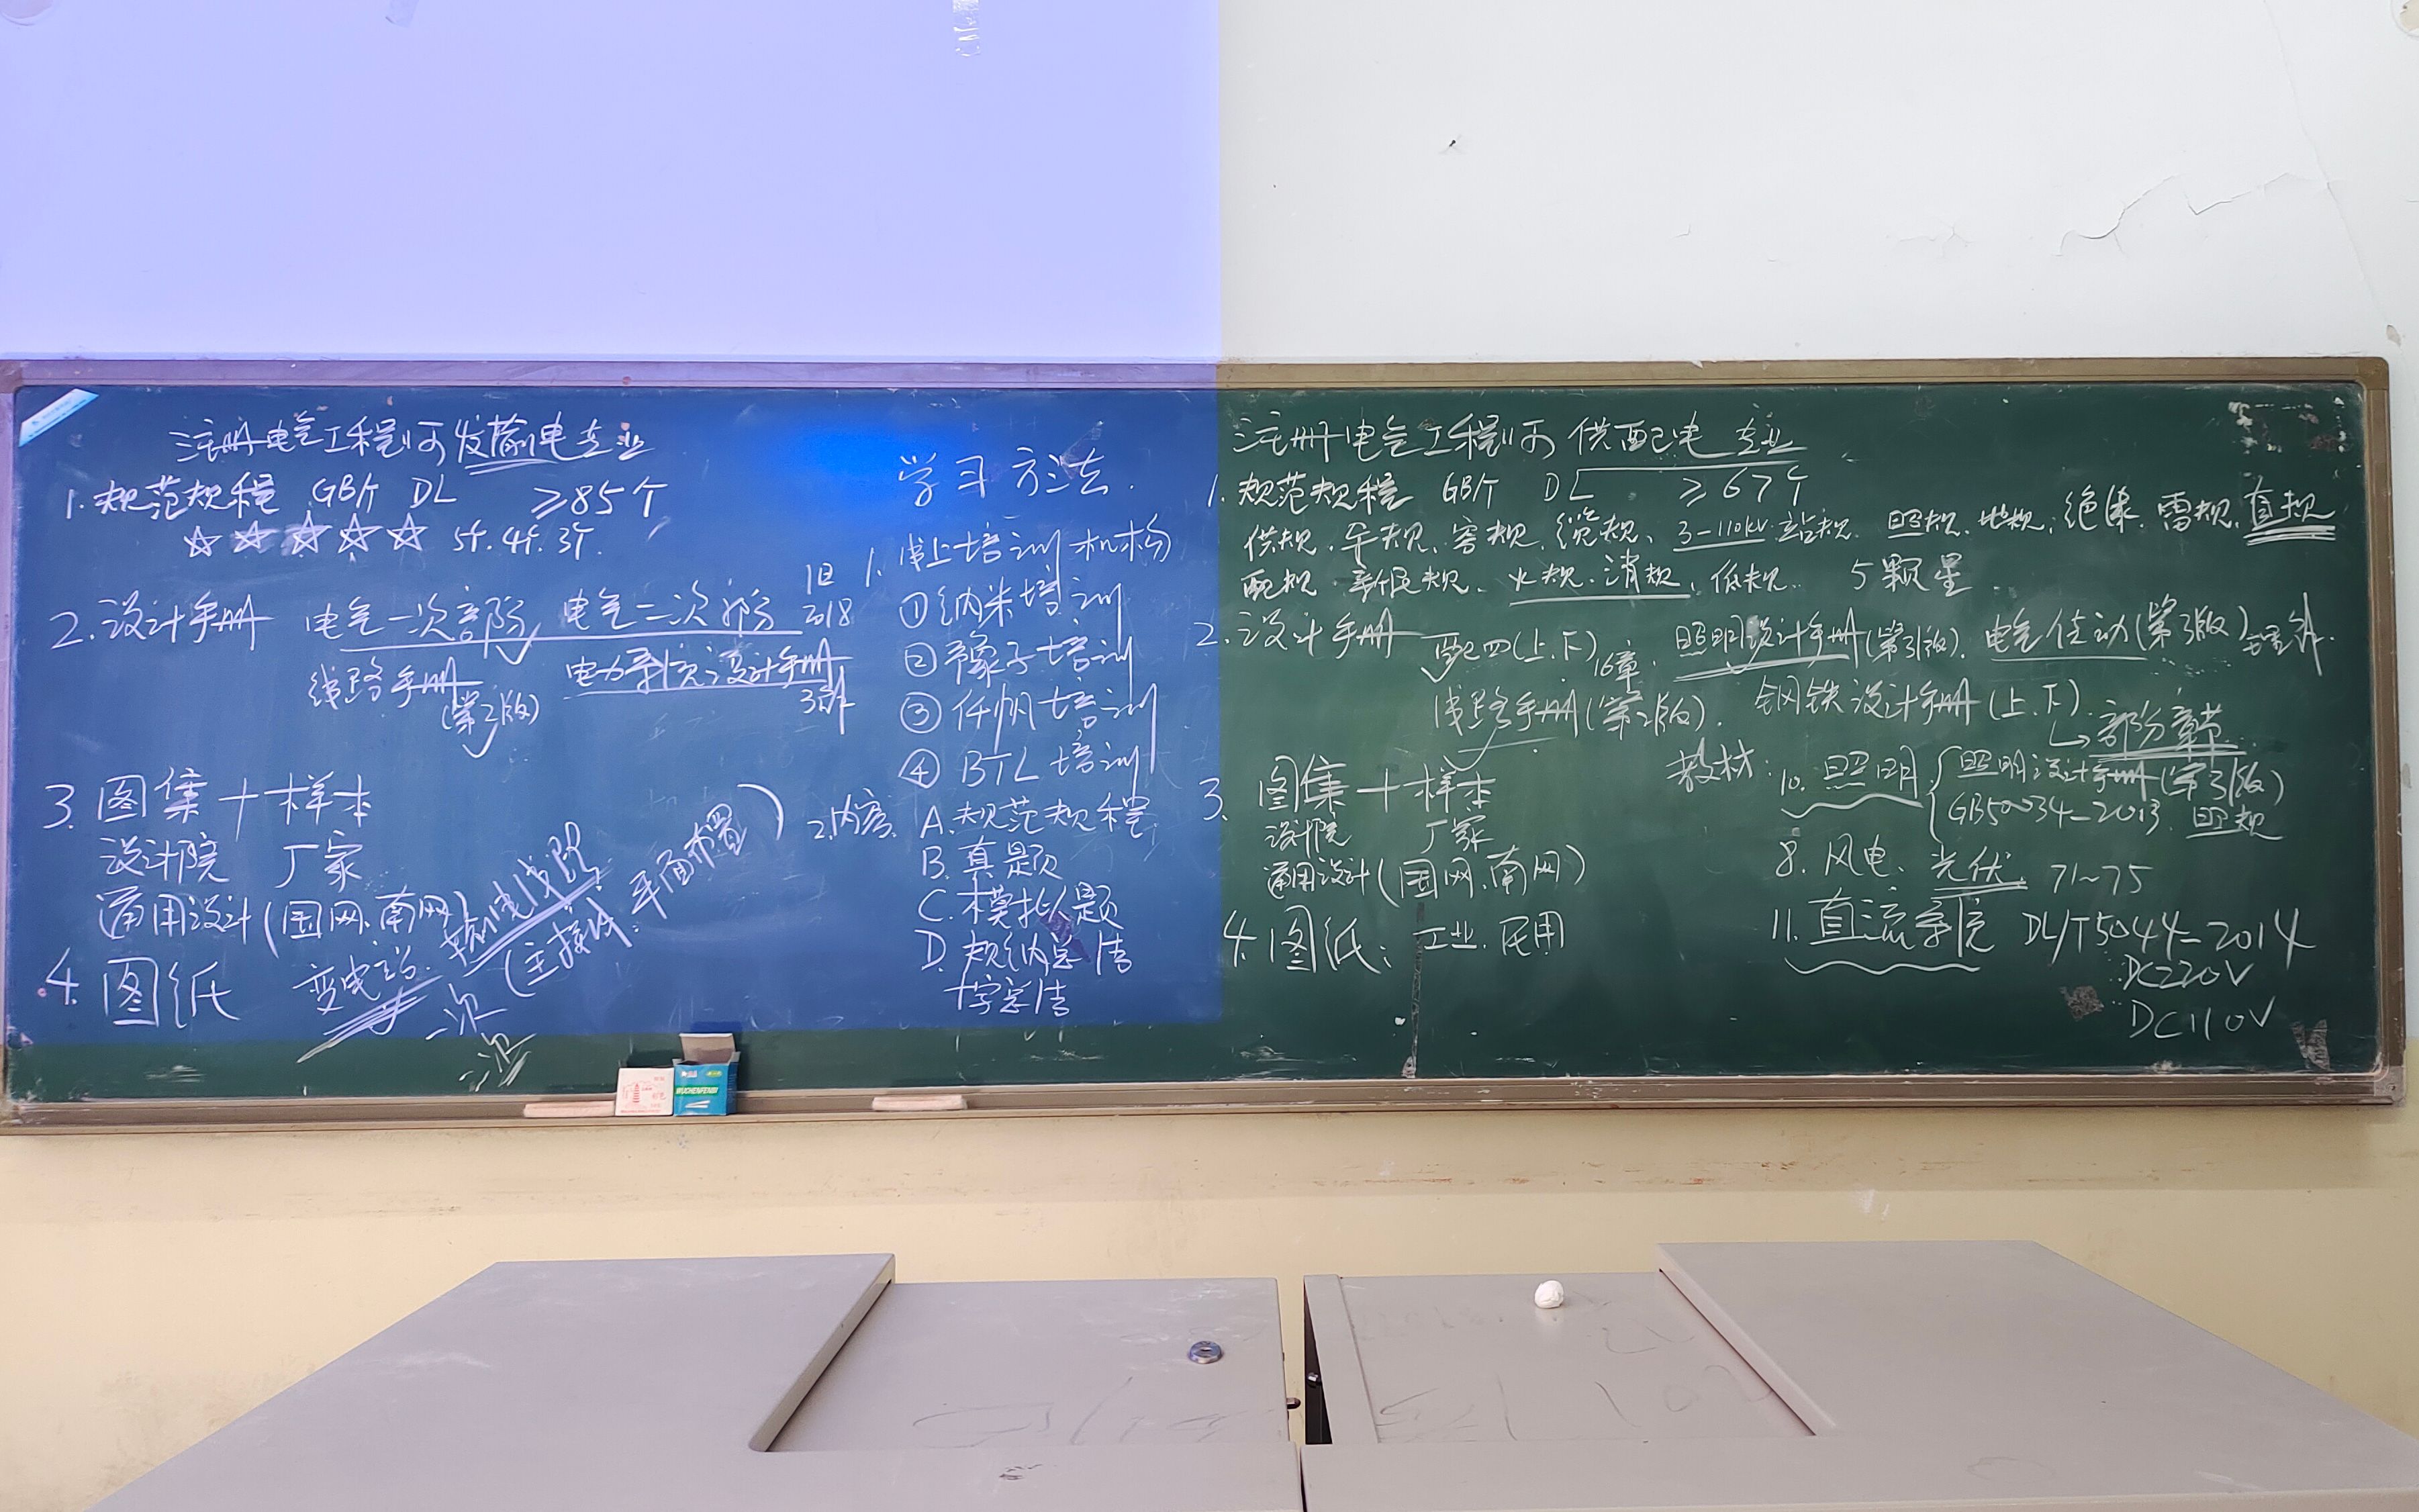 注册电气工程师发输电专业
1. 规范规程 GB/T DL ≥85个
☆ ☆ ☆ ☆ ☆ 5f. 4f. 3f.
2. 设计手册 电气一次部分 电气二次部分 旧 2018
线路手册 (第二版) 电力系统设计手册 3部
3. 图集+样本
设计院 厂家
通用设计(国网.南网)
4. 图纸 变电站. 输电线路
一次 (主接线. 平面布置)
二次
学习方法.
1. 线上培训机构
① 纳米培训
② 
③ 仟帆培训
④ BTL培训
2. 内容. A. 规范规程
B. 真题
C. 模拟题
D. 规纳总结
总结
注册电气工程师 供配电 专业
1. 规范规程 GB/T DL ≥67个
供规. 平规. 容规. 缆规、3-110kV. 站规. 照规. 地规. 绝缘. 雷规. 直规
配规. 民规、火规. 消规、低规. 5颗星
2. 设计手册 配四(上.下) 16章. 照明设计手册(第3版). 电气传动(第3版)
线路手册(第2版). 钢铁设计手册(上.下).
↳ 部分章节
3. 图集+样本
设计院 厂家
通用设计(国网.南网)
4. 图纸: 工业. 民用
教材: 10. 照明 { 照明设计手册(第3版)
GB50034-2013. 照规
8. 风电、光伏. 71~75
11. 直流系统 DL/T5044-2014
DC220V
DC110V